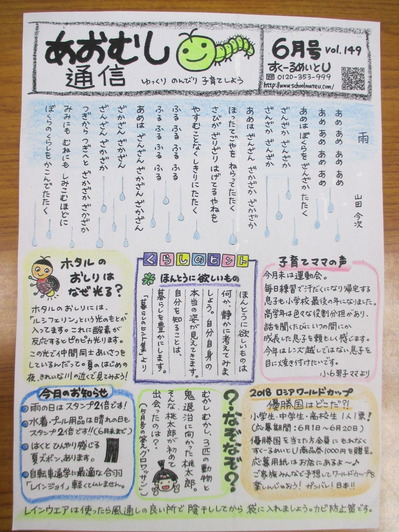 あおむし
通信
ゆっくり のんびり 子育てしよう
6月号 vol.149
すくーるめいとU
0120-353-999
雨
山田 今次
あめ あめ あめ あめ
あめ あめ あめ あめ
あめはぼくらを ざんざか たたく
ざんざか ざんざか
ざんざん ざかざか
あめは ざんざん ざかざか ざかざか
ほったてごやを ねらって たたく
ぼくらの くらしを びしびし たたく
さびが ざりざり はげてる やねを
やすむことなく しきりに たたく
ふる ふる ふる ふる
ふる ふる ふる ふる
あめは ざんざん ざかざん ざかざん
ざかざん ざかざん
ざんざん ざかざか
つぎから つぎへと ざかざか ざかざか
みみにも むねにも しみこむ ほどに
ぼくらの くらしを かこんで たたく
ホタルの
おしりは
なぜ光る?
ホタルのおしりには、
「ルシフェリン」という光のもとが
入ってます。これに酸素が
反応するとピカピカ光ります。
この光で仲間同士あいさつを
しているんだって。
くらしのヒント
ほんとうに欲しいもの
ほんとうに欲しいものは
何か、静かに考えてみま
しょう。自分自身の
本当の姿が見えてきます。
自分を知ることは、
暮らしを豊かにします。
「暮らしのヒント集」より
子育てママの声
今月末は運動会。
毎日練習で汗だくになり帰宅する
息子も小学校最後の年になりました。
高学年は色々な役割分担があり、
話を聞くたびにいつの間にか
成長した息子を頼もしく感じます。
今年はレンズ越しではない息子を
目に焼き付けたいです。
小6男子ママより
今日のお知らせ
雨の日はスタンプ2倍です!
水着・プール用品は晴れの日も
スタンプ2倍です!!(6月末まで)
はくとひんやり感じる
夏ズボンあります。
自転車通学に最適な合羽
「レインジョイ」軽くてムレません。
?なぞなぞ?
むかしむかし、3匹の動物と
鬼退治に向かった桃太郎。
そんな桃太郎が初めて
出会ったのは?
2018 ロシアワールドカップ
優勝国はどこだ?!
小学生・中学生・高校生(1人1票)
(応募期間:6月1日〜6月20日)
優勝国を当てた方全員に もれなく
すくーるめいとU商品券1000円を贈呈。
応募用紙はお店にあるよ〜♪
ご家族みんなで予想してワールドカップを
楽しんじゃおう! ガンバレ!日本!!
レインウエアは使ったら風通しの良い所で陰干ししてから袋に入れましょう。カビ防止策です。